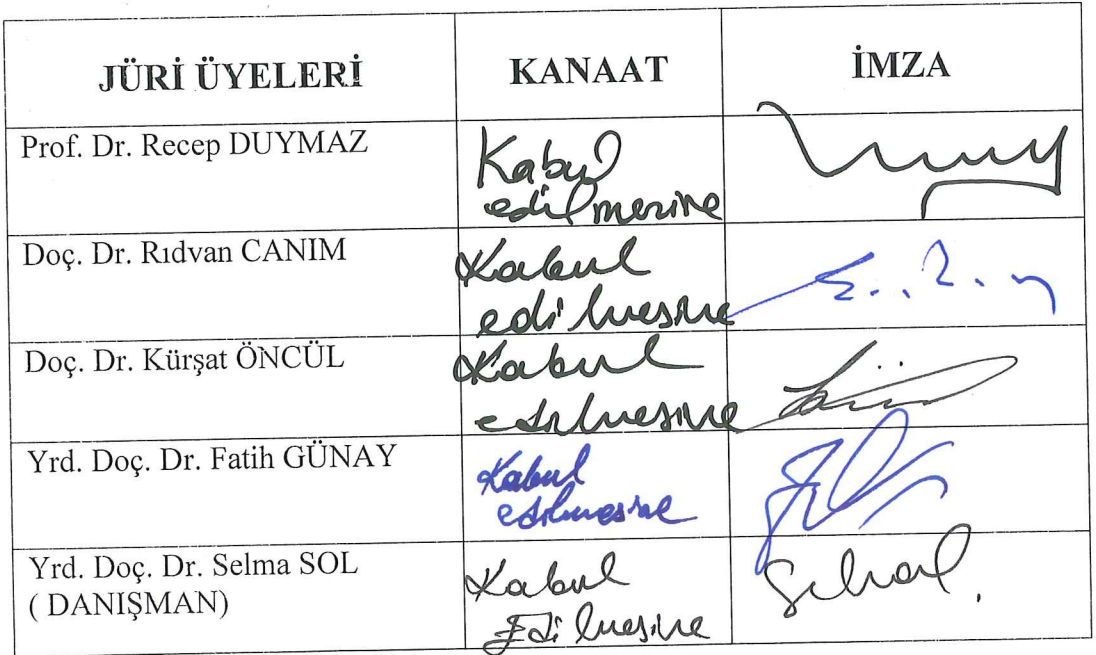 JÜRİ ÜYELERİ KANAAT İMZA
Prof. Dr. Recep DUYMAZ Kabul
edilmesine
Doç. Dr. Rıdvan CANIM Kabul
edilmesine
Doç. Dr. Kürşat ÖNCÜL Kabul
edilmesine
Yrd. Doç. Dr. Fatih GÜNAY Kabul
edilmesine
Yrd. Doç. Dr. Selma SOL Kabul
( DANIŞMAN) Edilmesine